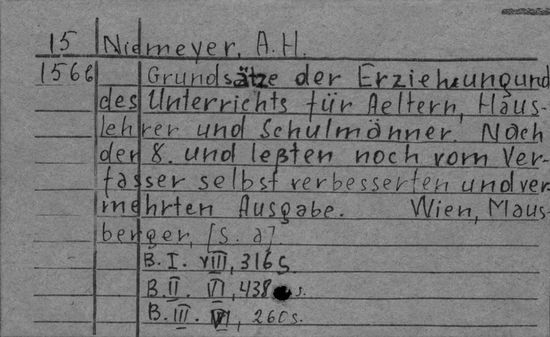 15 Niemeyer, A.H.
1566 Grundsätze der Erziehung und
des Unterrichts für Aeltern, Haus-
lehrer und Schulmänner. Nach
der 8. und leßten noch vom Ver-
fasser selbst verbesserten und ver
mehrten Ausgabe. Wien, Maus
berger, [s. a].
B. I. VIII, 316 S.
B. II. VI, 438 s.
B. III. VI, 260 s.